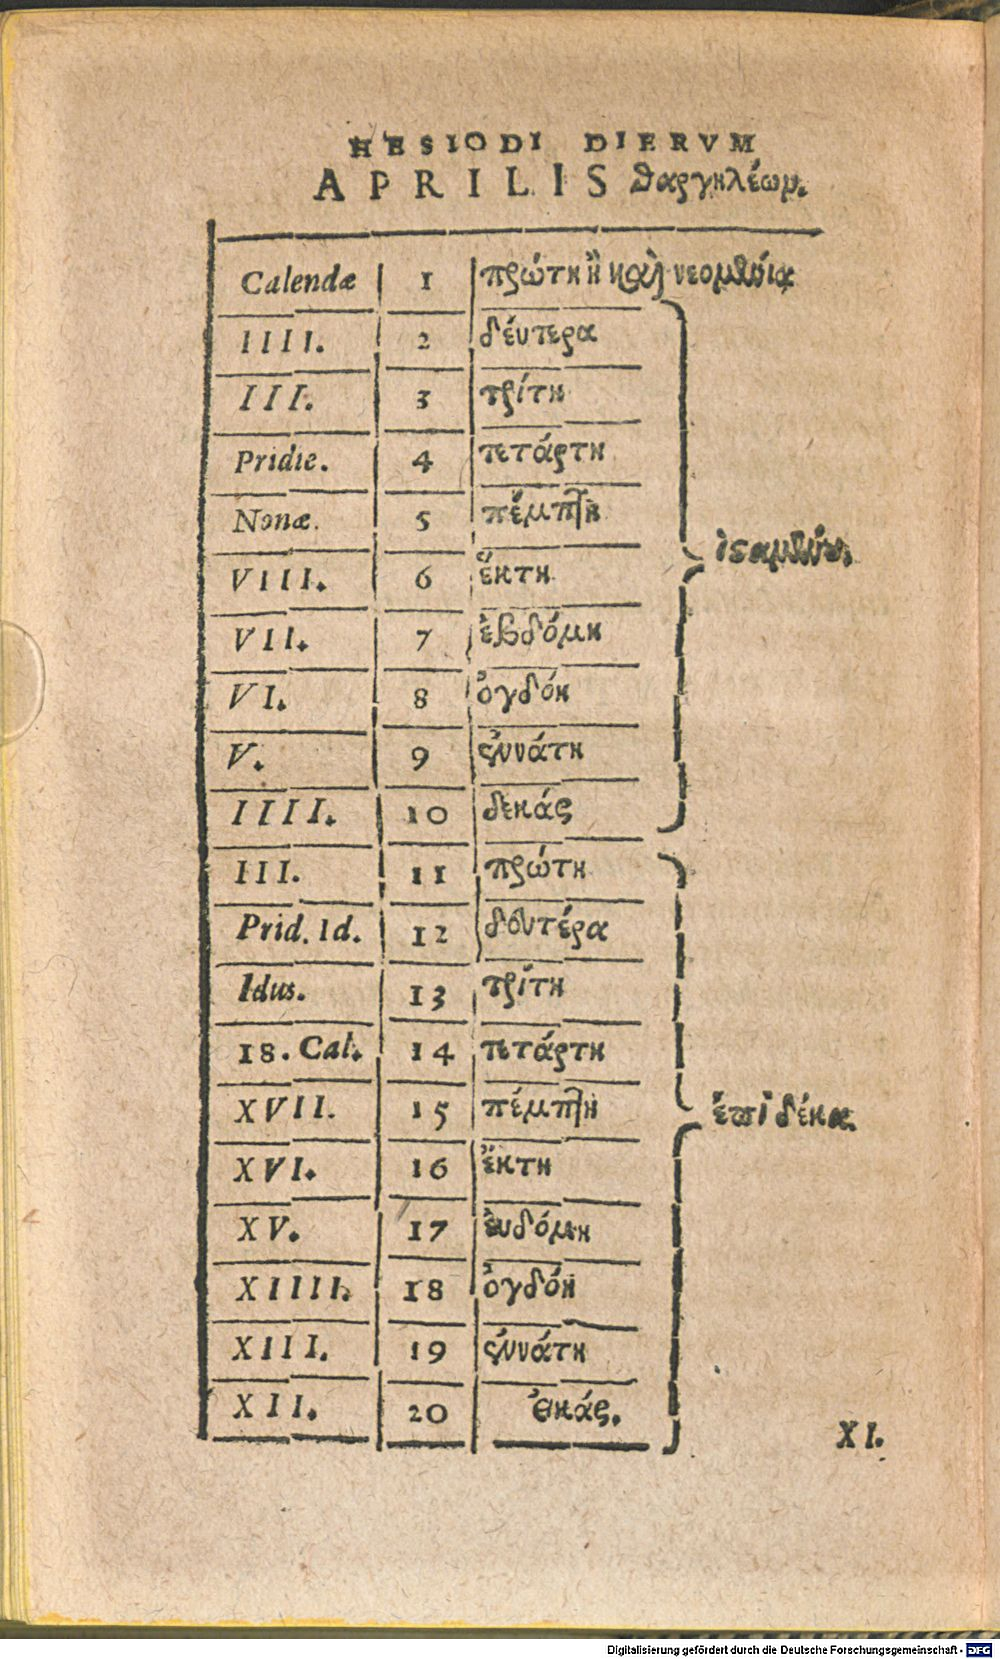 HESIODI DIERVM
APRILIS θαργηλέων.
Calendæ 1 πρώτη ἢ καὶ νεομηνία
IIII. 2 δέυτερα
III. 3 τρίτη
Pridie. 4 τετάρτη
Nonæ. 5 πέμπτη
VIII. 6 ἕκτη
VII. 7 ἑβδόμη
VI. 8 ὀγδόη
V. 9 ἐννάτη
IIII. 10 δεκάς
ἱσαμένου.
III. 11 πρώτη
Prid. Id. 12 δευτέρα
Idus. 13 τρίτη
18. Cal. 14 τετάρτη
XVII. 15 πέμπτη
XVI. 16 ἕκτη
XV. 17 ἑυδόμη
XIIII. 18 ὀγδόη
XIII. 19 ἐννάτη
XII. 20 ἐικάς.
ἐπὶ δέκα.
XI.
Digitalisierung gefördert durch die Deutsche Forschungsgemeinschaft - DFG